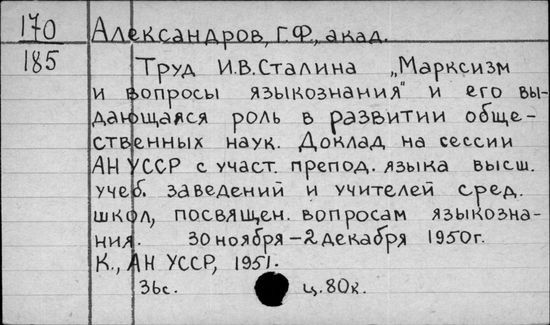 170 Александров, Г.Ф., акад.
185 Труд И.В.Сталина „Марксизм
и вопросы языкознания" и его вы-
дающаяся роль в развитии обще-
ственных наук. Доклад на сессии
АН УССР с участ. препод. языка высш.
учеб. заведений и учителей сред.
школ, посвящен. вопросам языкозна-
ния. 30 ноября – 2 декабря 1950г.
К., АН УССР, 1951.
36с. ц.80к.